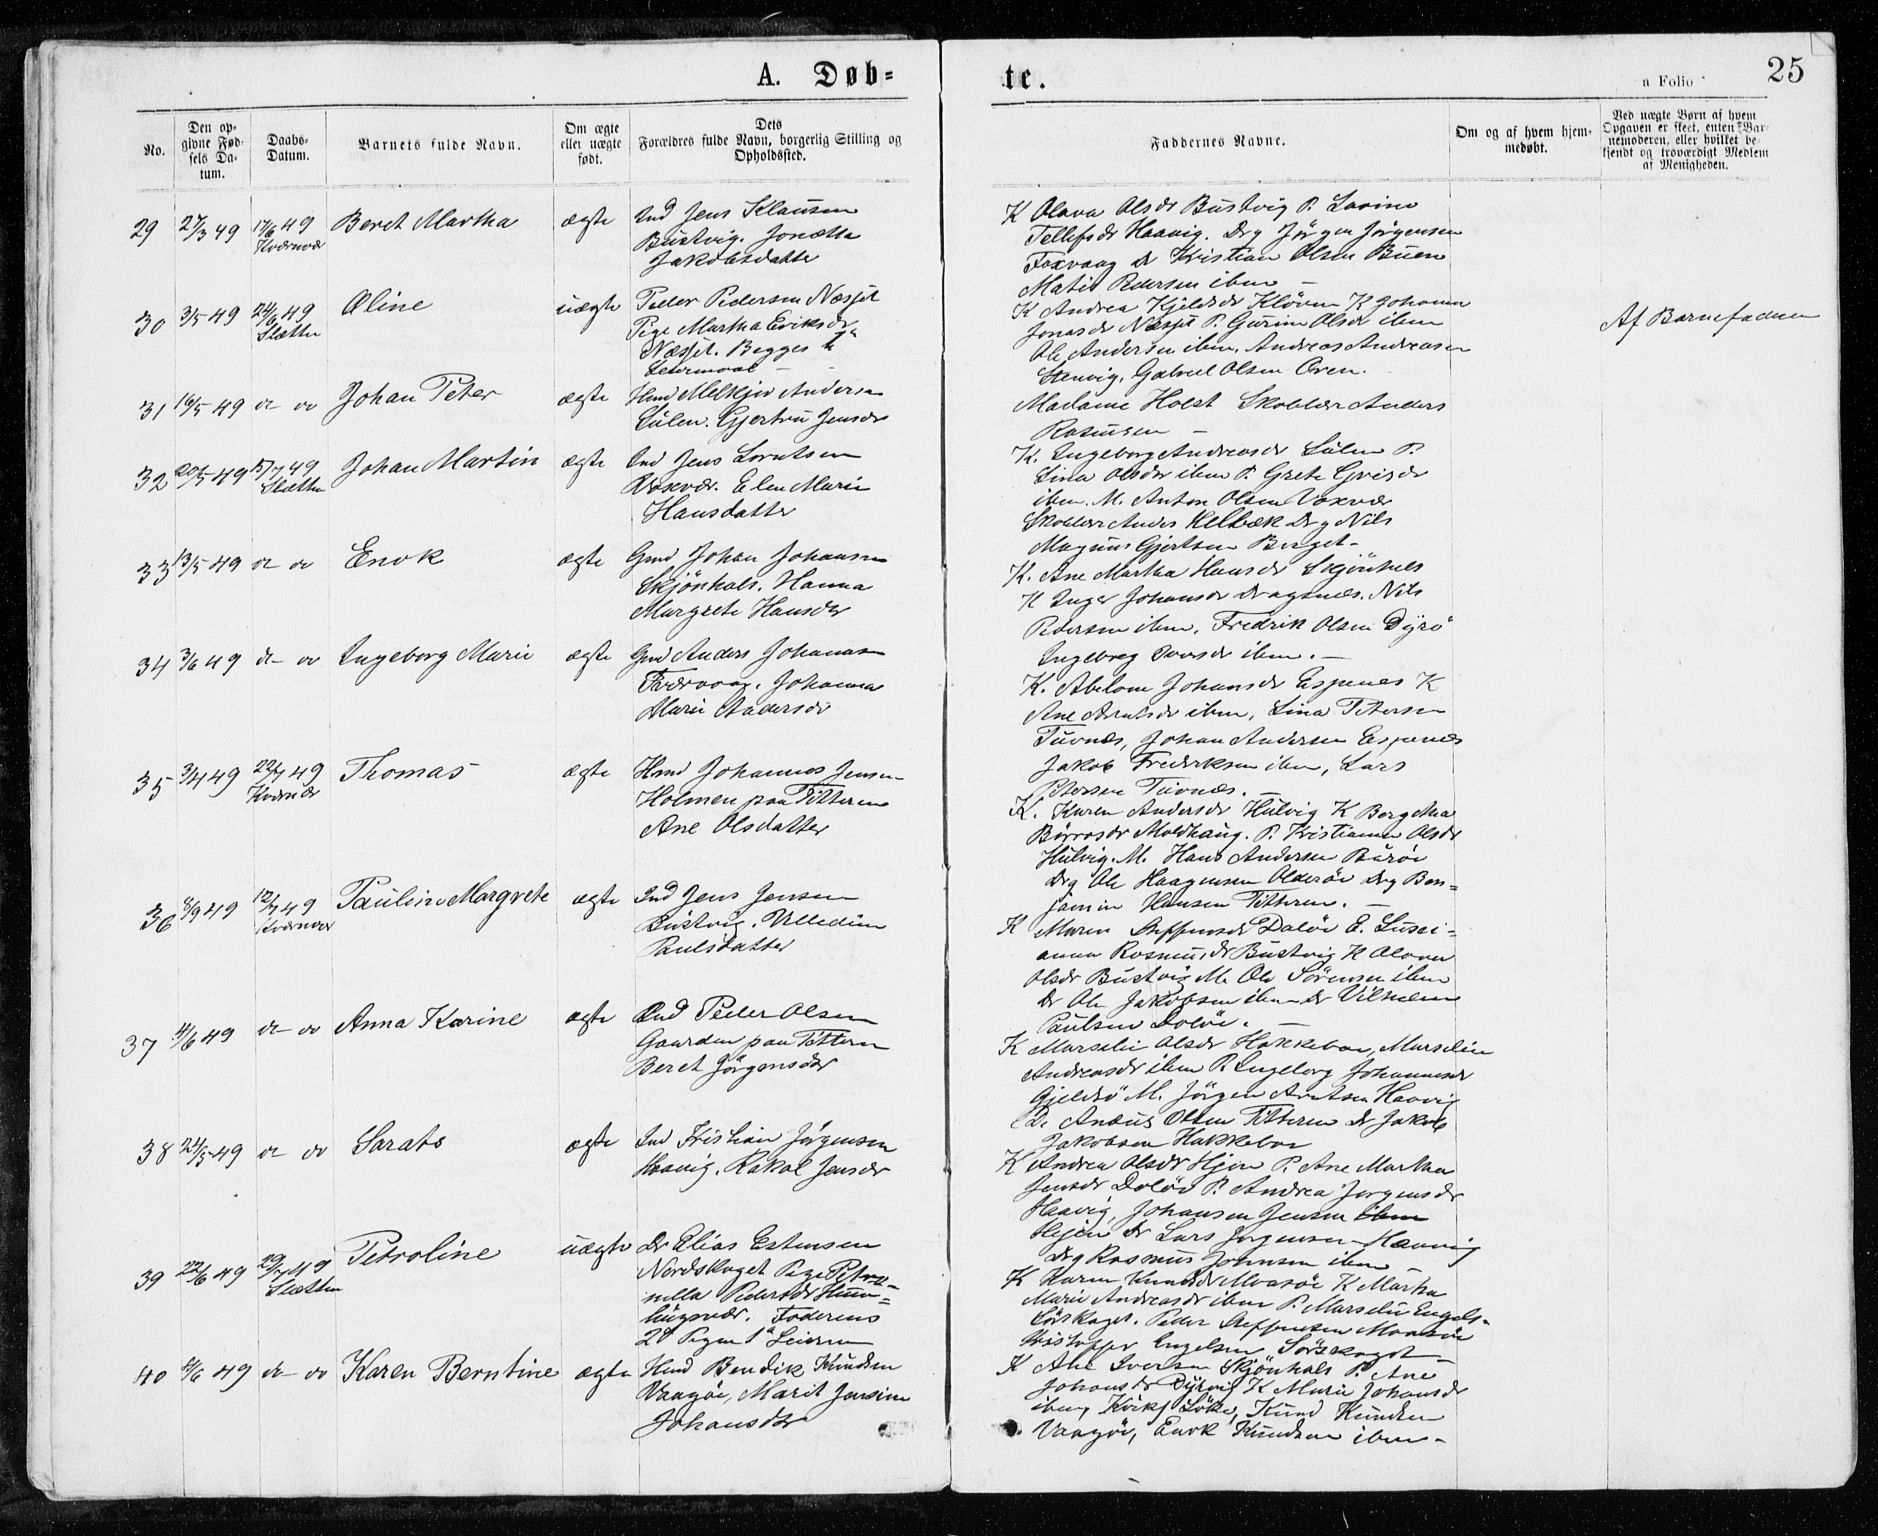 A. Døb-
te.
a Folio
25
No.
Den op-
givne Fød-
sels Da-
tum.
Daabs-
Datum.
Barnets fulde Navn.
Om ægte
eller uægte
født.
Dets
Forældres fulde Navn, borgerlig Stilling og
Opholdssted.
Faddernes Navne.
Om og af hvem hjem-
medøbt.
Ved uægte Børn af hvem
Opgaven er skeet, enten Bar-
nemoderen, eller hvilket be-
kjendt og troværdigt Medlem
af Menigheden.
29 27/3 49 17/6 49 Beret Martha ægte Ind Jens Klausen
Kværnvær
Bustvig. Jonetta
Jakobsdatter
K Olava Olsdr Bustvig P. Lavine
Tellefsdr Haavig. Drg Jörgen Jörgensen
Faxvaag dr Kristian Olsen Buen
Matis Pedersen ibm –
30 3/5 49 24/6 49 Oline uægte Peder Pedersen Næsset
Sletten
Pige Martha Eriksdr
Næsset. Begges 1ste
Leiermaal –
K Andrea Kjeldsdr Klöven K Johanna
Jonasdr Næsset P. Gurine Olsdr ibm
Ole Andersen ibm. Andreas Andreasen
Stenvig, Gabriel Olsen Oren.
Af Barnefaderen
31 16/5 49 dr do Johan Peter ægte Hmd Melkjer Andersen
Sulen. Gjertru Jensdr
Madame Holst Skolelær Anders
Rasmusen –
32 20/5 49 15/7 49 Johan Martin ægte Ind Jens Lorntsen
Sletten
Vaxvær. Elen Marie
Hansdatter
K. Ingeborg Andreasdr Sulen P.
Lina Olsdr ibm P. Grete Grisdr
ibm. M. Anton Olsen Vaxvær
Skolelær Anders Helbæk Drg Nils
Magnus Gjertsen Berget –
33 13/5 49 dr do Enok ægte Gmd Johan Johansen
Skjönhals. Hanna
Margrete Hansdr
K. Ane Martha Hansdr Skjönhals
K Inger Johansdr Dragsnes. Nils
Pedersen ibm. Fredrik Olsen Dyrö
Ingebreg Iversdr ibm. –
34 3/6 49 dr do Ingeborg Marie ægte Gmd Anders Johansen
Johanna
Marie Andersdr
K. Abelone Johansdr Espenes K
Ane Arntsdr ibm, Lina Petersen
Tuvnæs, Johan Andersen Espenes
Jakob Fredriksen ibm, Lars
Petersen Tuvnæs. –
35 3/4 49 22/7 49 Thomas ægte Hmd Johannes Jensen
Kværnvær
Holmen paa Titteren
Ane Olsdatter
K. Karen Andersdr Hulvig K Bergitha
Börrosdr Moldhaug. P. Kristianna Olsdr
Hulvig. M. Hans Andersen Buröi
Drg Ole Haagensen Olderöi Drg Ben-
jamin Hansen Titteren. –
36 Pauline Margrete ægte Ind Jens Jensen
Kværnvær
Bustvig. Velledine
Paulsdatter
K Maren Steffensdr Dolöi E. Lussi-
anna Rasmusdr Bustvig K Olava
Olsdr Bustvig M. Ole Sörensen ibm
Dr Ole Jakobsen ibm Dr Vilhelm
Paulsen Dolöi. –
37 4/6 49 dr do Anna Karine ægte Ind Peder Olsen
Gaarden paa Titteren
Beret Jörgensdr
K Marselie Olsdr Hakkeboe, Marseline
Andreasdr ibm P. Ingeborg Johannesdr
Gjeldsö M. Jörgen Arntsen Haavig
D. Anæus Olsen Titteren dr Jakob
Jakobsen Hakkeboe
38 24/5 49 dr do Sarats ægte Ind Kristian Jörgensen
Haavig. Rakel Jensdr
K Andrea Olsdr Hejen P. Ane Martha
Jensdr Dolöi P. Andrea Jorgensdr
Haavig, Johansen Jensen ibm
Hejen Dr Lars Jorgensen Haavig
Drg Rasmus Johnsen ibm –
39 22/6 49 29/7 49 Petroline uægte Dr Elias Estensen
Sletten
Nordskaget Pige Petro-
nella Pedersdr Hum-
lingsvær. Faderens
2d Pigen 1ste Leierm
K Karen Knudsdr Maasöi K Martha
Marie Andreasdr ibm P. Marselie Engels-
Sörskaget. Peder Steffensen Maasöi
Kristoffer Engelsen Sörskaget –
40 dr do Karen Berntine ægte Hmd Bendik Knudsen
Vaagöi, Marit Jensine
Johansdr
K Ane Iversen Skjönhals P. Ane
Johansdr Dyrvig K Marie Johansdr
ibm, Knud Knudsen
Vaagöi, Enok Knudsen ibm –